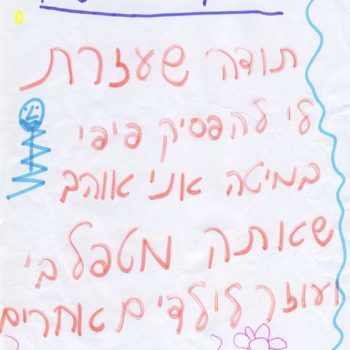 תודה שעזרת
לי להפסיק פיפי
במיטה אני אוהב
שאותה מטפל בי
ועוזר לילדים אחרים